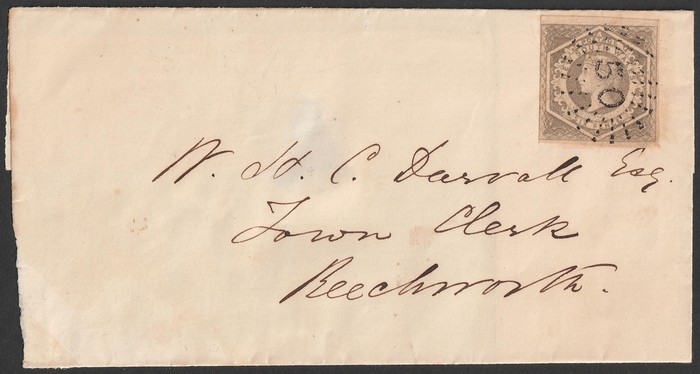 50
W. H. C. Darvall Esq.
Town Clerk
Beechworth.